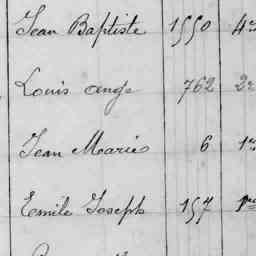 Jean Baptiste 1550 4e
Louis ange 762 2e
Jean Marie 6 1re
Emile Joseph 157 1re